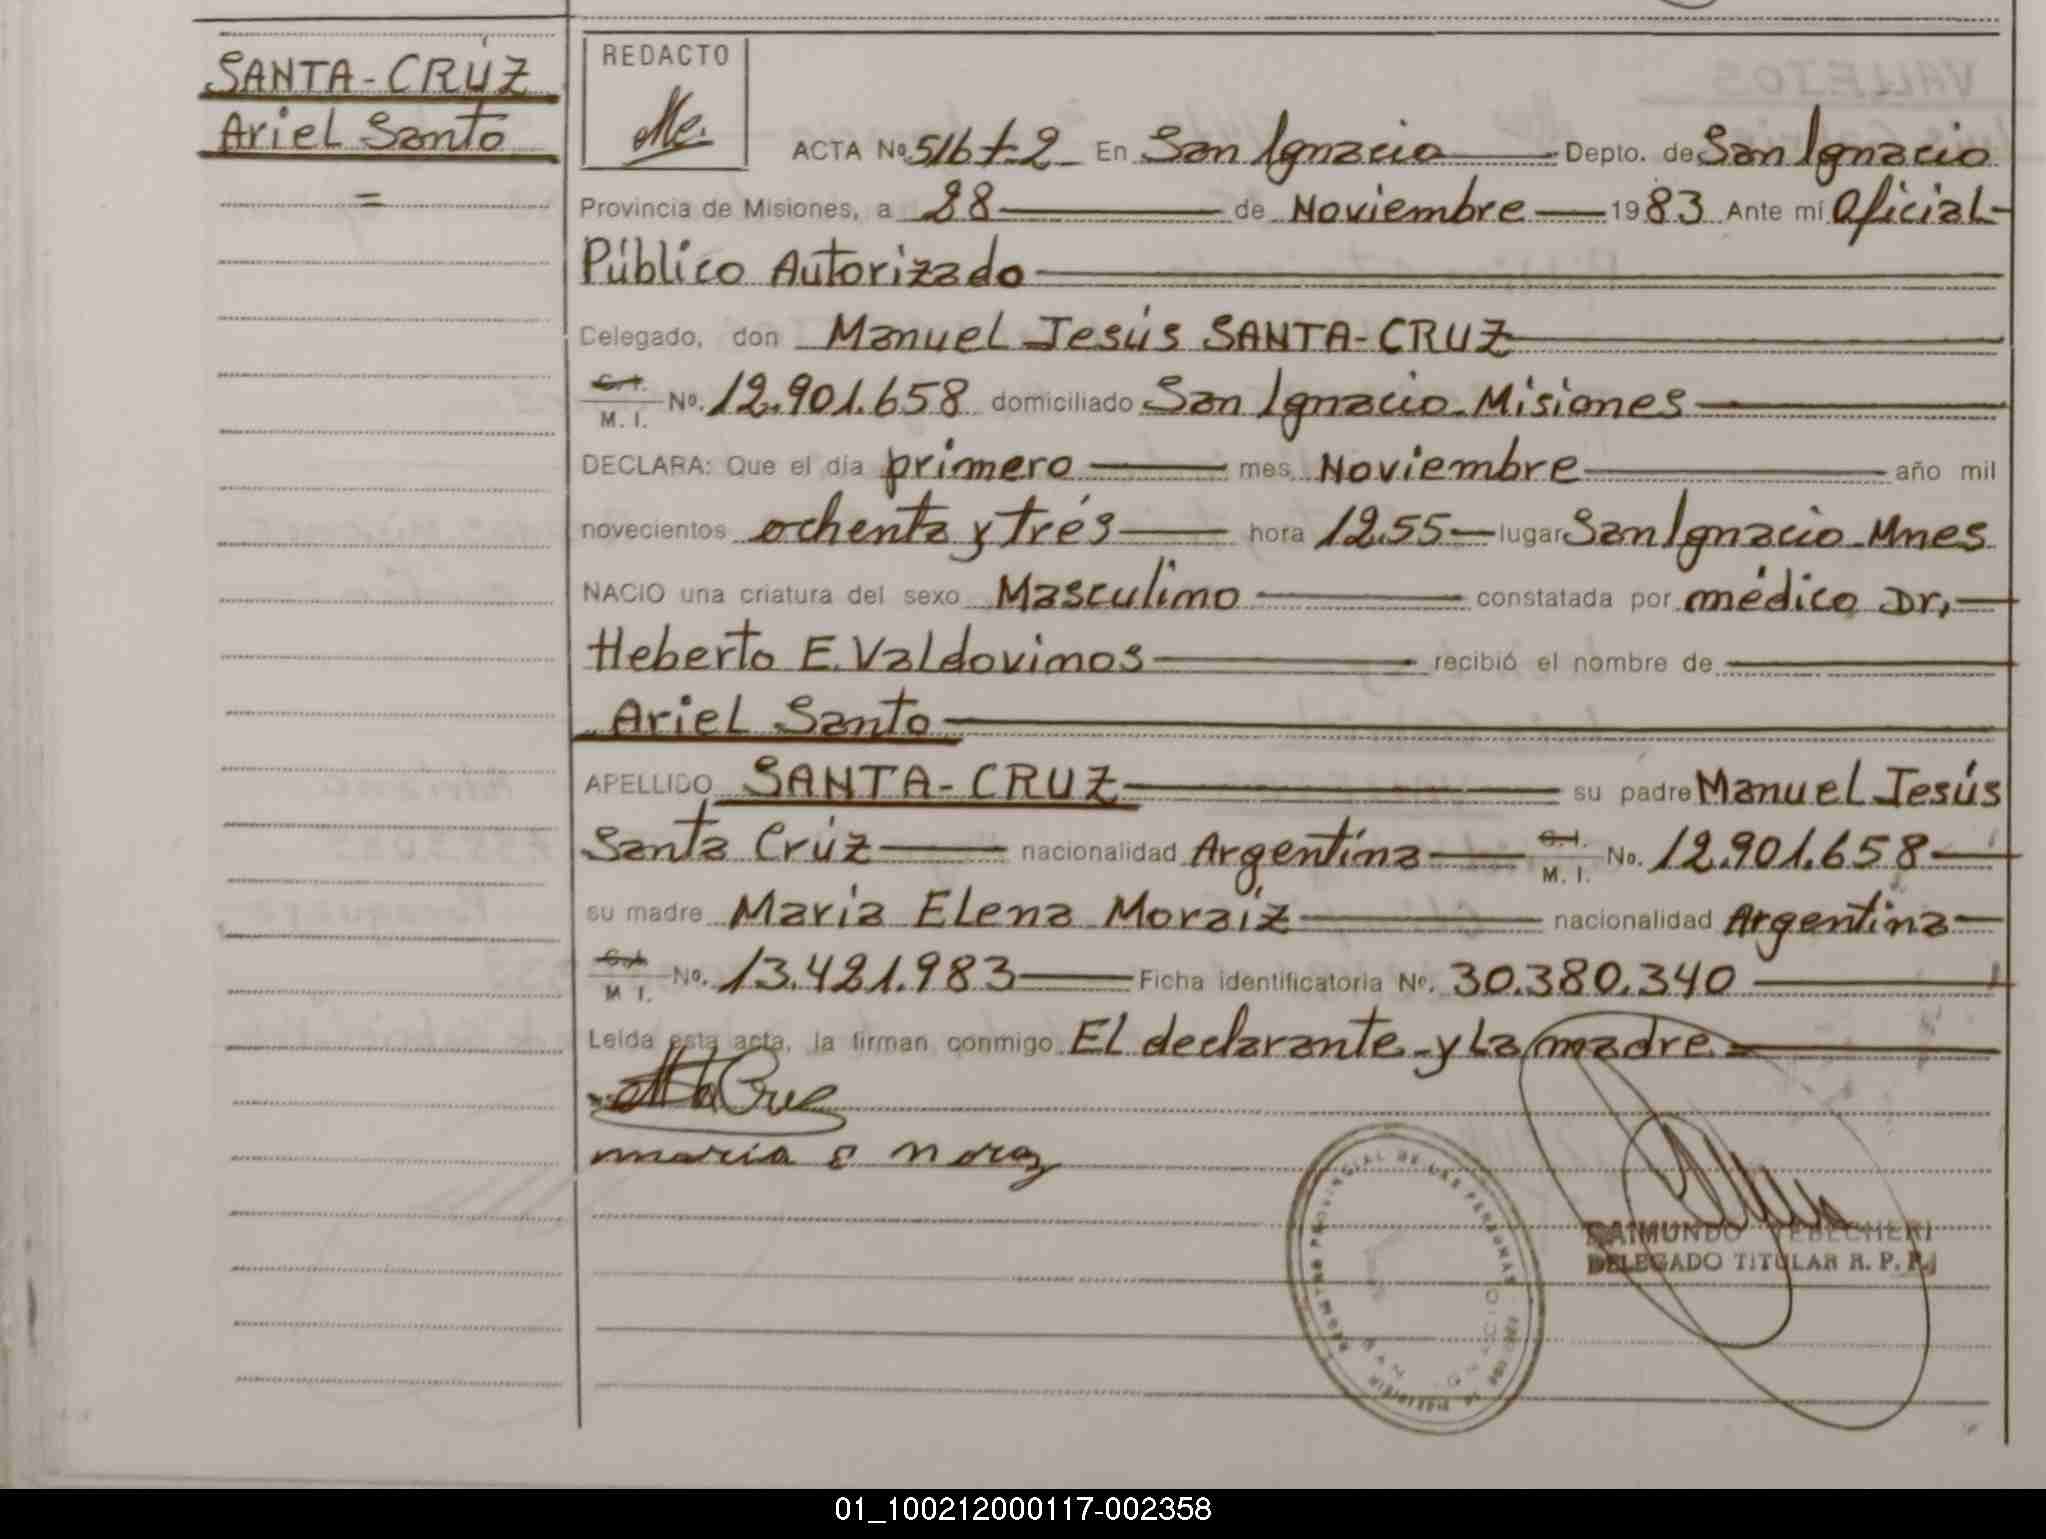 SANTA-CRUZ
Ariel Santo
=
REDACTO
ACTA Nº 516 t-2 En San Ignacio Depto. de San Ignacio
Provincia de Misiones, a 28 de Noviembre 1983 Ante mí Oficial
Público Autorizado
Delegado, don Manuel Jesús SANTA-CRUZ
C.I.
M. I. Nº. 12.901.658 domiciliado San Ignacio-Misiones
DECLARA: Que el día primero mes Noviembre año mil
novecientos ochenta y trés hora 12.55 lugar San Ignacio-Mnes
NACIO una criatura del sexo Masculino constatada por médico Dr,
Heberto E. Valdovinos recibió el nombre de
Ariel Santo
APELLIDO SANTA-CRUZ su padre Manuel Jesús
Santa Crúz nacionalidad Argentína C.I. M. I. No. 12.901.658
su madre María Elena Moraíz nacionalidad Argentina
C.I. M I. No. 13.421.983 Ficha identificatoria Nº. 30.380.340
Leída esta acta, la firman conmigo El declarante y La madre
Cruz
maria e
REGISTRO PROVINCIAL DE LAS PERSONAS
SAN IGNACIO
RAIMUNDO
DELEGADO TITULAR R. P. P.
01_100212000117-002358